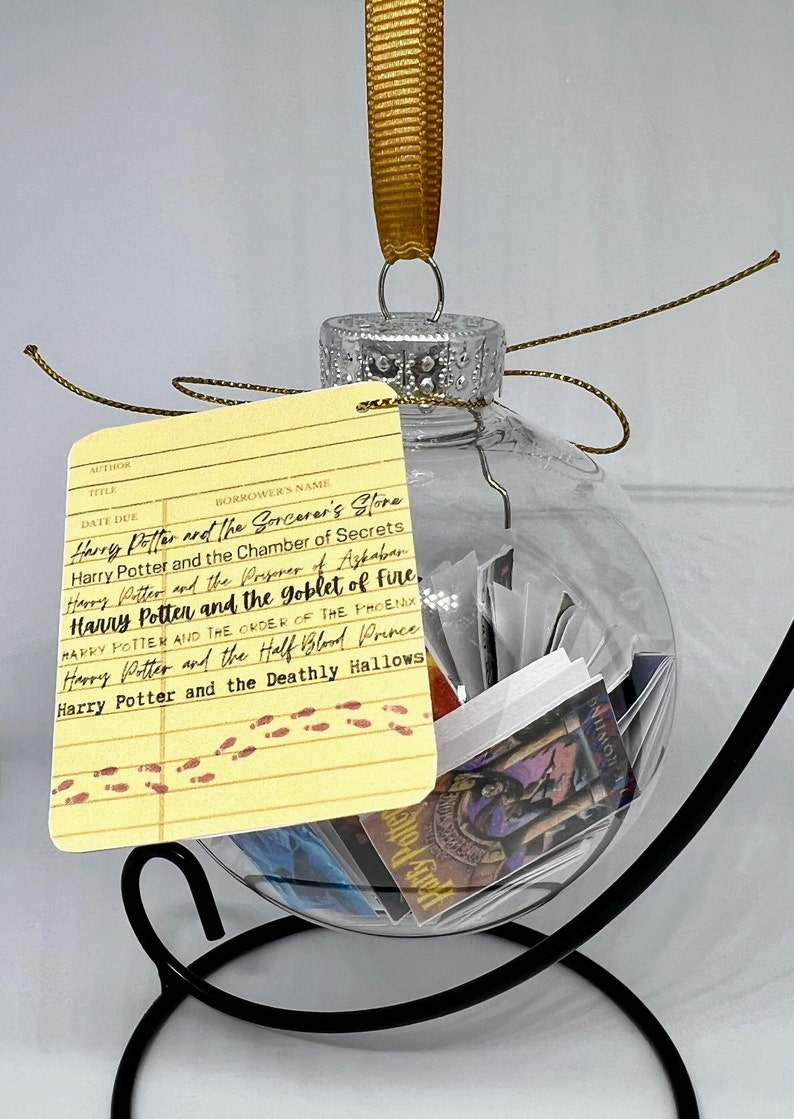 AUTHOR
TITLE
DATE DUE
BORROWER'S NAME
Harry Potter and the Sorcerer's Stone
Harry Potter and the Chamber of Secrets
Harry Potter and the Prisoner of Azkaban
Harry Potter and the Goblet of Fire
HARRY POTTER AND THE ORDER OF THE PHOENIX
Harry Potter and the Half-Blood Prince
Harry Potter and the Deathly Hallows
Harry Potter